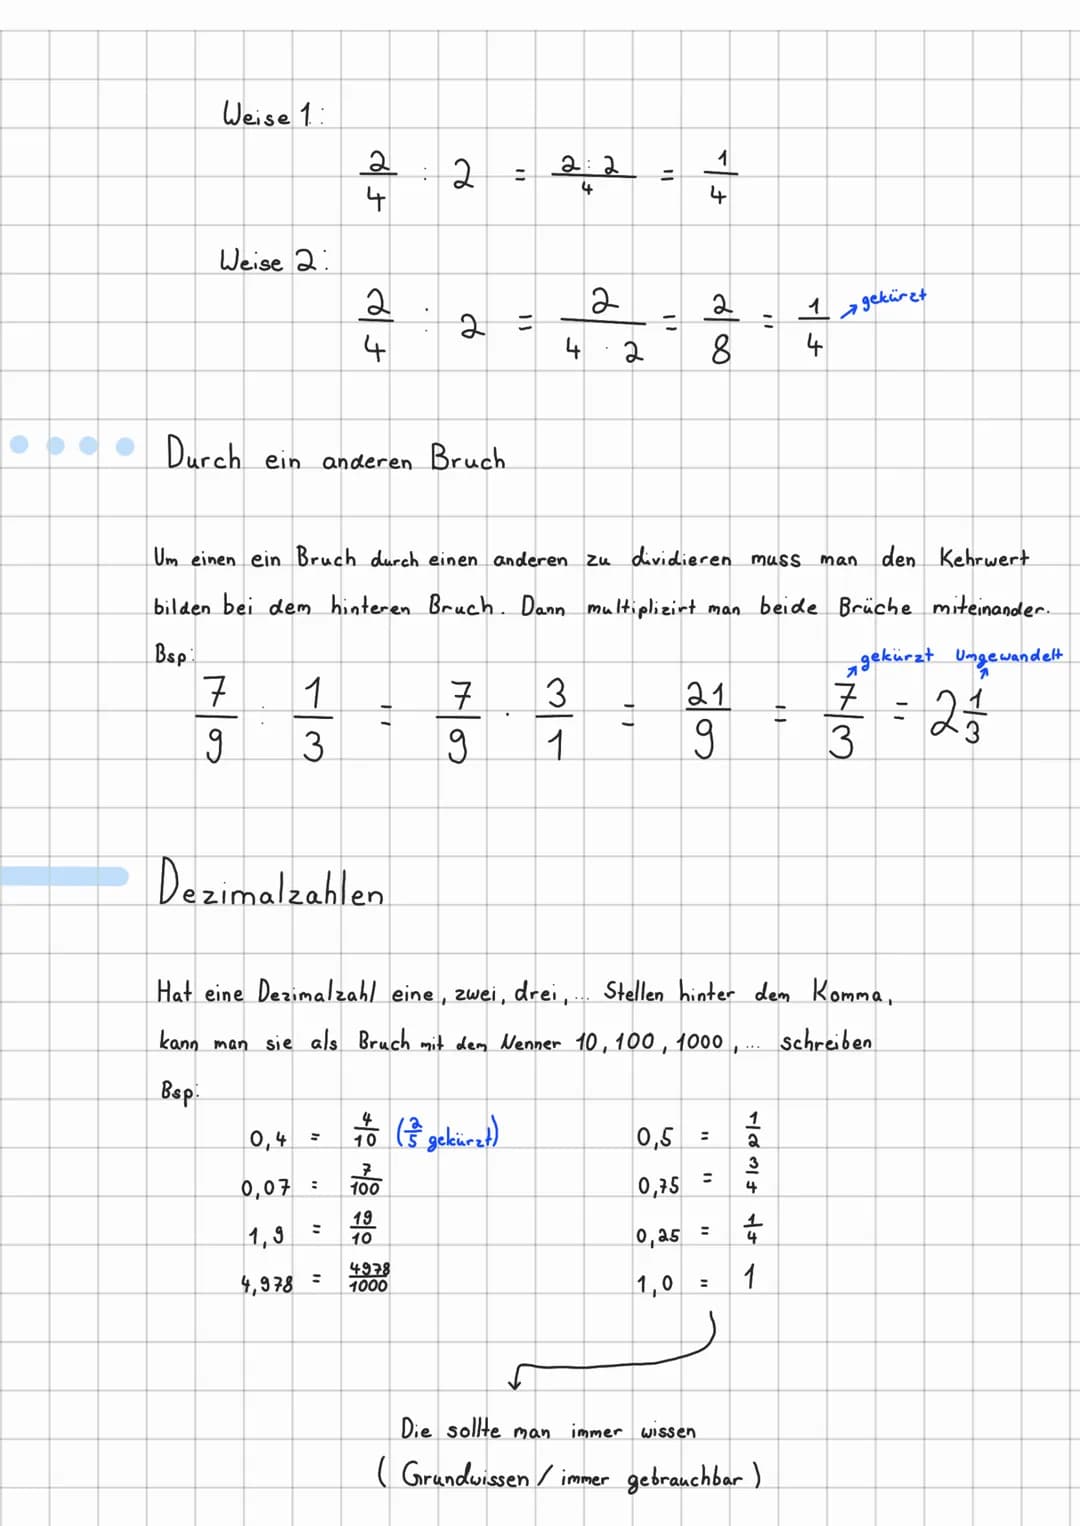 Weise 1:
2/4 : 2 = 2:2/4 = 1/4
Weise 2:
2/4 : 2 = 2/4·2 = 2/8 = 1/4 ↗gekürzt
Durch ein anderen Bruch
Um einen ein Bruch durch einen anderen zu dividieren muss man den Kehrwert
bilden bei dem hinteren Bruch. Dann multiplizirt man beide Brüche miteinander.
Bsp:
gekürzt Umgewandelt
7/9 : 1/3 = 7/9 · 3/1 = 21/9 = 7/3 = 2 1/3
Dezimalzahlen
Hat eine Dezimalzahl eine, zwei, drei, ... Stellen hinter dem Komma,
kann man sie als Bruch mit dem Nenner 10, 100, 1000, ... schreiben
Bsp:
0,4 = 4/10 (2/5 gekürzt) 0,5 = 1/2
0,07 = 7/100 0,75 = 3/4
1,9 = 19/10 0,25 = 1/4
4,978 = 4978/1000 1,0 = 1
Die sollte man immer wissen
( Grundwissen / immer gebrauchbar )